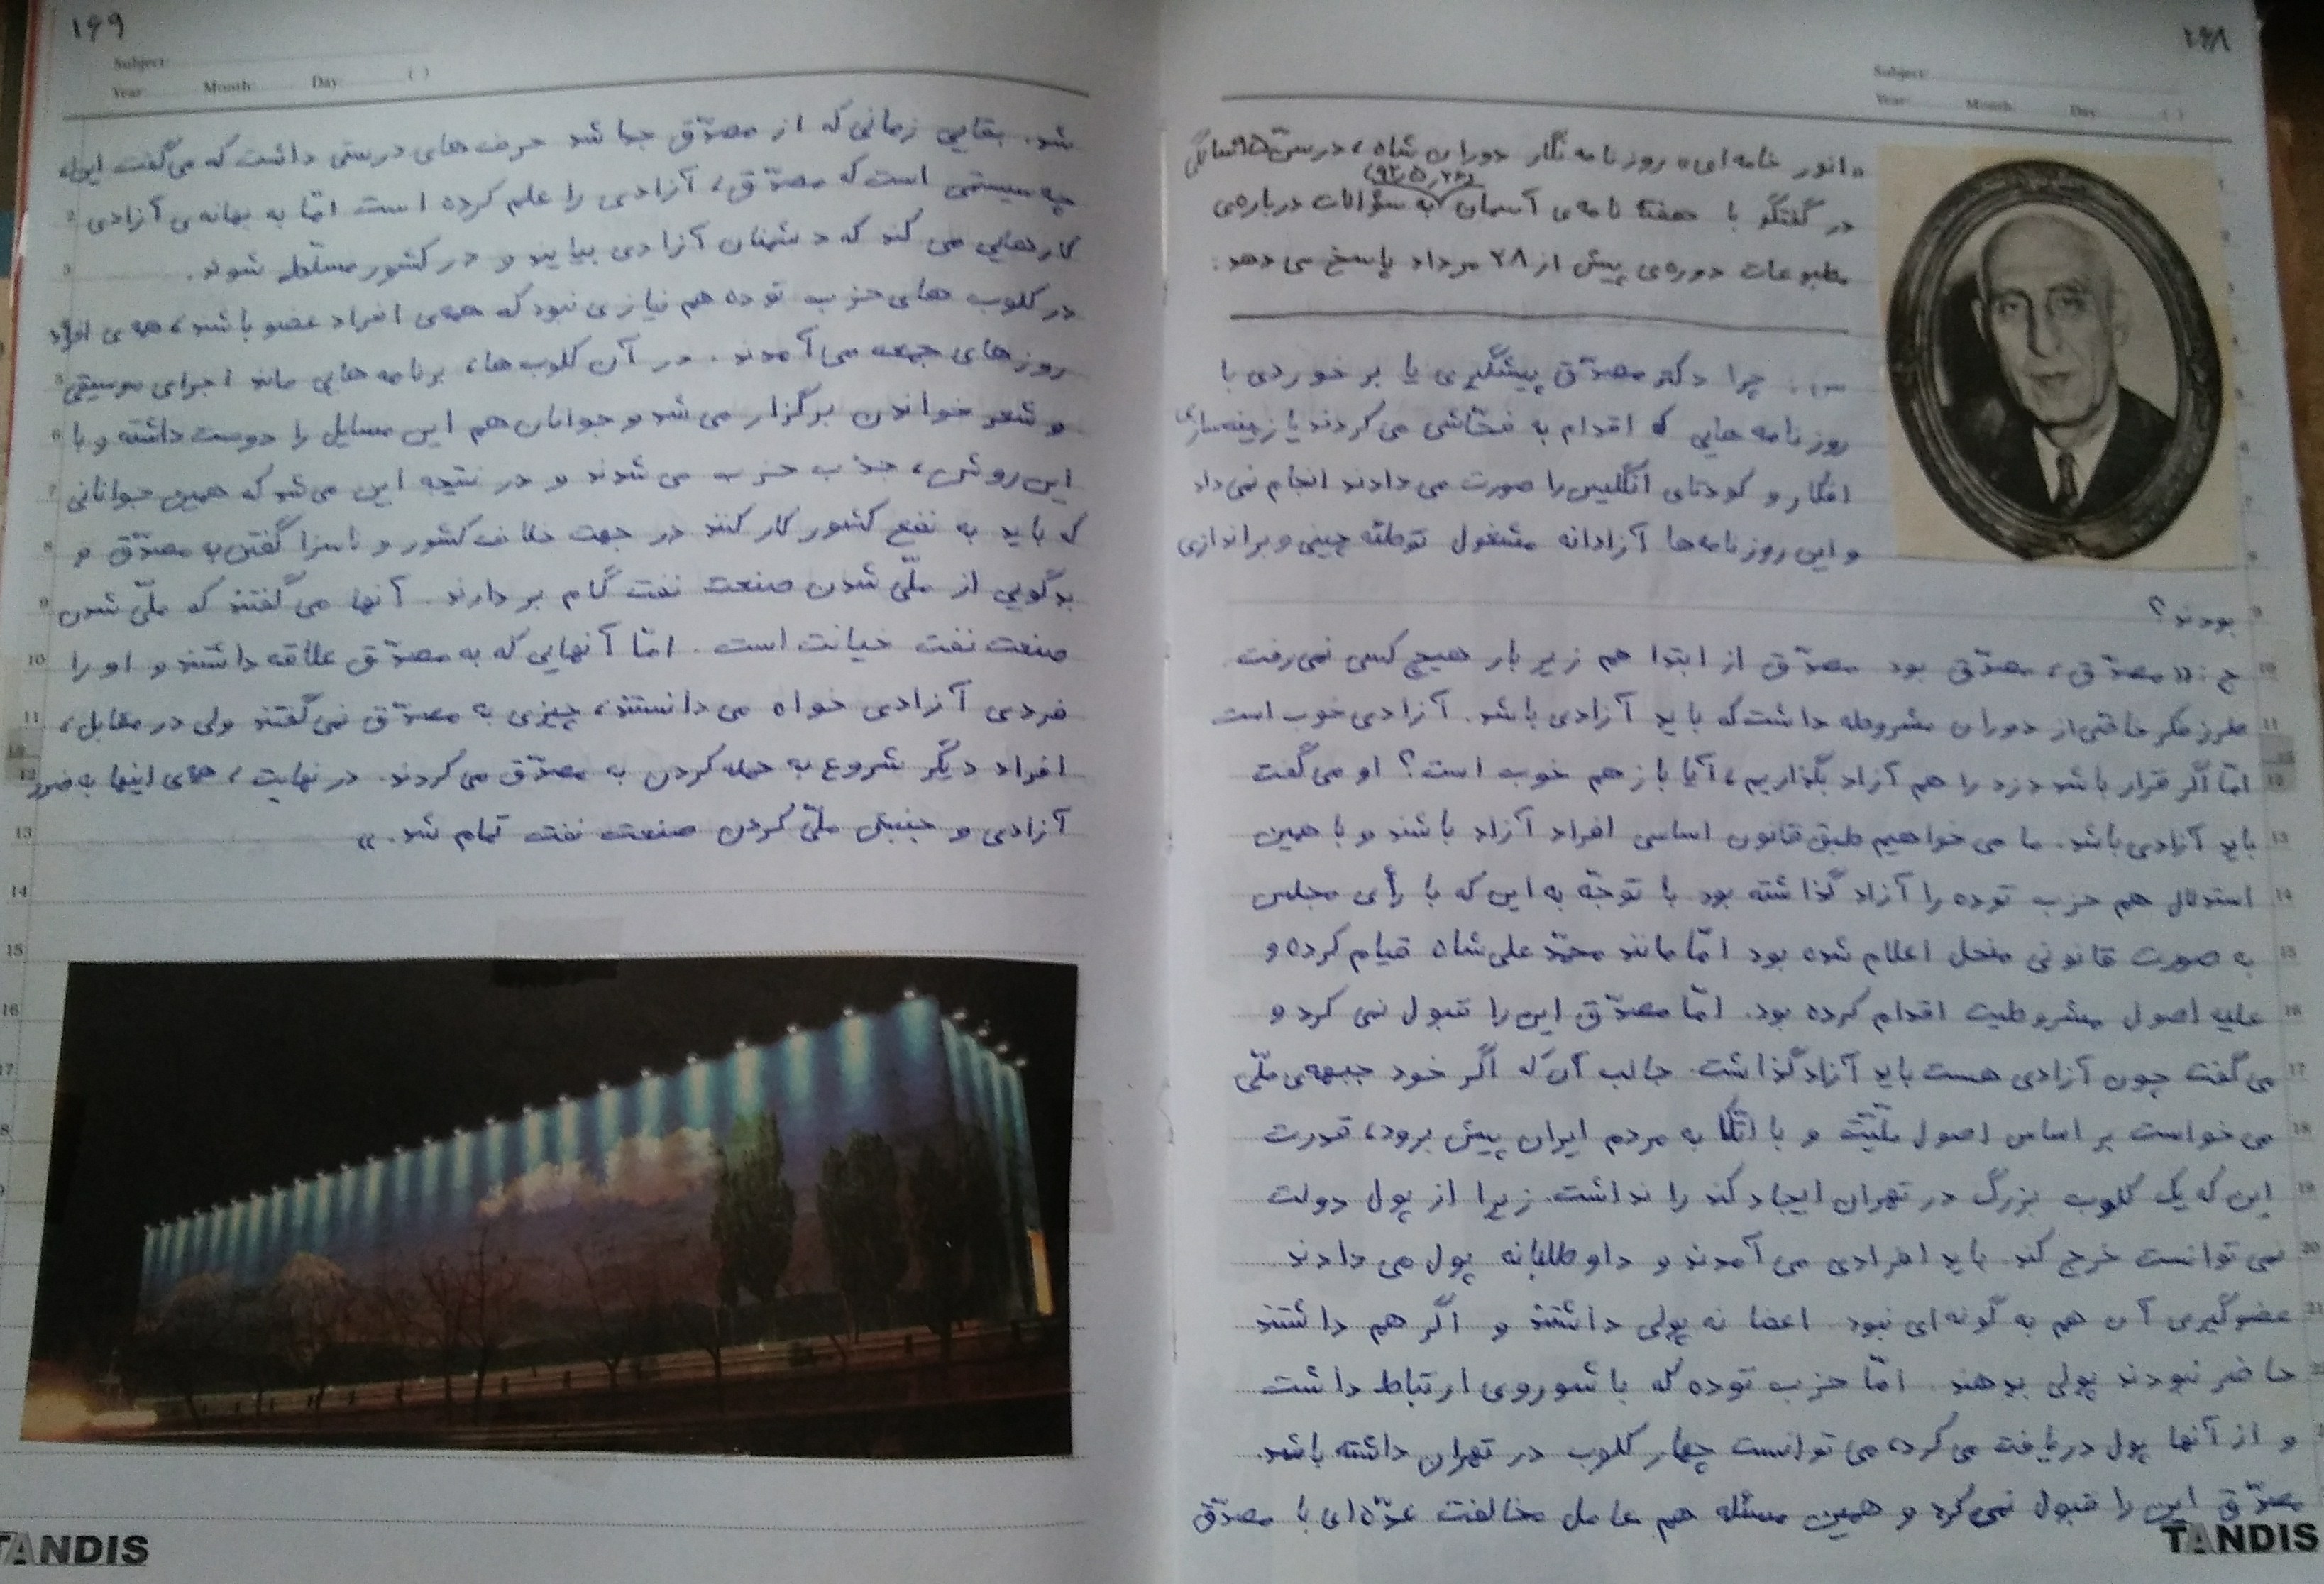 ۱۶۸
Subject:
Year: Month: Day: ( )
«انور خامه‌ای» روزنامه نگار دوران شاه، در سن ۹۵ سالگی
(۹۲,۵,۲۶)
در گفتگو با هفته نامه‌ی آسمان به سؤالات درباره‌ی
مطبوعات دوره‌ی پیش از ۲۸ مرداد پاسخ می دهد:
س: چرا دکتر مصدّق پیشگیری یا برخوردی با
روزنامه هایی که اقدام به فحّاشی می کردند یا زمینه سازی
افکار و کودتای انگلیس را صورت می دادند انجام نمی داد
و این روزنامه ها آزادانه مشغول توطئه چینی و براندازی
بودند؟
ج: «مصدّق، مصدّق بود مصدّق از ابتدا هم زیر بار هیچ کسی نمی رفت.
طرز فکر خاصّی از دوران مشروطه داشت که باید آزادی باشد. آزادی خوب است
امّا اگر قرار باشد دزد را هم آزاد بگذاریم، آیا باز هم خوب است؟ او می گفت
باید آزادی باشد. ما می خواهیم طبق قانون اساسی افراد آزاد باشند و با همین
استدلال هم حزب توده را آزاد گذاشته بود با توجّه به این که با رأی مجلس
به صورت قانونی منحل اعلام شده بود امّا مانند محمّد علی شاه قیام کرده و
علیه اصول مشروطیت اقدام کرده بود. امّا مصدّق این را قبول نمی کرد و
می گفت چون آزادی هست باید آزاد گذاشت. جالب آن که اگر خود جبهه‌ی ملّی
می خواست بر اساس اصول ملّیّت و با اتّکا به مردم ایران پیش برود، قدرت
این که یک کلوب بزرگ در تهران ایجاد کند را نداشت. زیرا از پول دولت
نمی توانست خرج کند. باید افرادی می آمدند و داوطلبانه پول می دادند.
عضوگیری آن هم به گونه ای نبود اعضا نه پولی داشتند و اگر هم داشتند
حاضر نبودند پولی بدهند. امّا حزب توده که با شوروی ارتباط داشت
و از آنها پول دریافت می کرد، می توانست چهار کلوب در تهران داشته باشد.
مصدّق این را قبول نمی کرد و همین مسئله هم عامل مخالفت عدّه ای با مصدّق
TANDIS
۱۶۹
Subject:
Year: Month: Day: ( )
شد. بقایی زمانی که از مصدّق جدا شد حرف های درستی داشت که می گفت این
چه سیستمی است که مصدّق، آزادی را علم کرده است امّا به بهانه‌ی آزادی
کارهایی می کند که دشمنان آزادی بیایند و در کشور مسلّط شوند.
در کلوب های حزب توده هم نیازی نبود که همه‌ی افراد عضو باشند، همه‌ی افراد
روزهای جمعه می آمدند. در آن کلوب ها، برنامه هایی مانند اجرای موسیقی
و شعر خواندن برگزار می شد و جوانان هم این مسایل را دوست داشته و با
این روش، جذب حزب می شدند و در نتیجه این می شد که همین جوانانی
که باید به نفع کشور کار کنند در جهت خلاف کشور و ناسزا گفتن به مصدّق و
بدگویی از ملّی شدن صنعت نفت گام بردارند. آنها می گفتند که ملّی شدن
صنعت نفت خیانت است. امّا آنهایی که به مصدّق علاقه داشتند و او را
فردی آزادی خواه می دانستند، چیزی به مصدّق نمی گفتند ولی در مقابل،
افراد دیگر شروع به حمله کردن به مصدّق می کردند. در نهایت، همه‌ی اینها به ضرر
آزادی و جنبش ملّی کردن صنعت نفت تمام شد.»
TANDIS